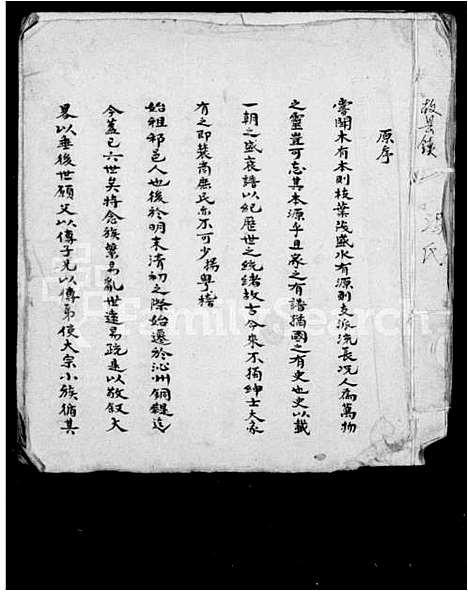 故县镇 冯氏
原序
嘗聞木有本則枝葉茂盛水有源則支派流長况人為萬物
之靈豈可忘其本源乎且家之有譜猶國之有史也史以載
一朝之盛衰譜以紀歷世之統緒故古今來不獨紳士大家
有之即農商庶民亦不可少揚粤稽
始祖祁邑人也後於明末清初之際始遷於沁州銅鞮迄
今蓋已六世矣特念族繁易亂世遠易疏是以敬叙大
畧以垂後世願父以傳子兄以傳弟使大宗小族循其
FamilySearch